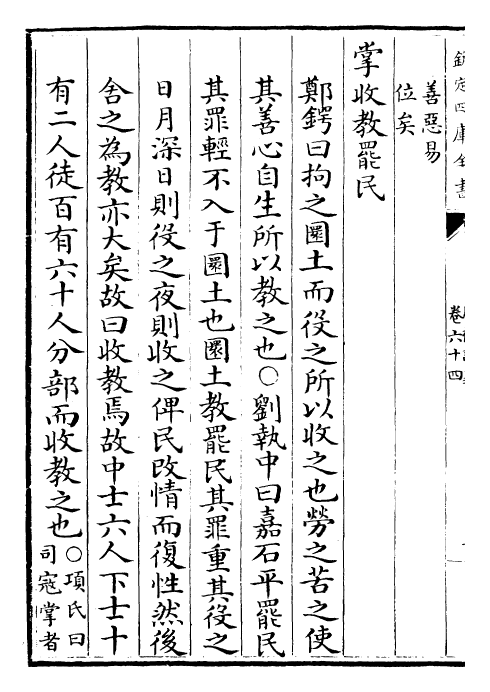 欽定四庫全書
卷六十四
善惡易
位矣
掌收教罷民
鄭鍔曰拘之圜土而役之所以收之也勞之苦之使
其善心自生所以教之也○劉執中曰嘉石平罷民
其罪輕不入于圜土也圜土教罷民其罪重其役之
日月深日則役之夜則收之俾民改情而復性然後
舍之為教亦大矣故曰收教焉故中士六人下士十
有二人徒百有六十人分部而收教之也○項氏曰
司寇掌者